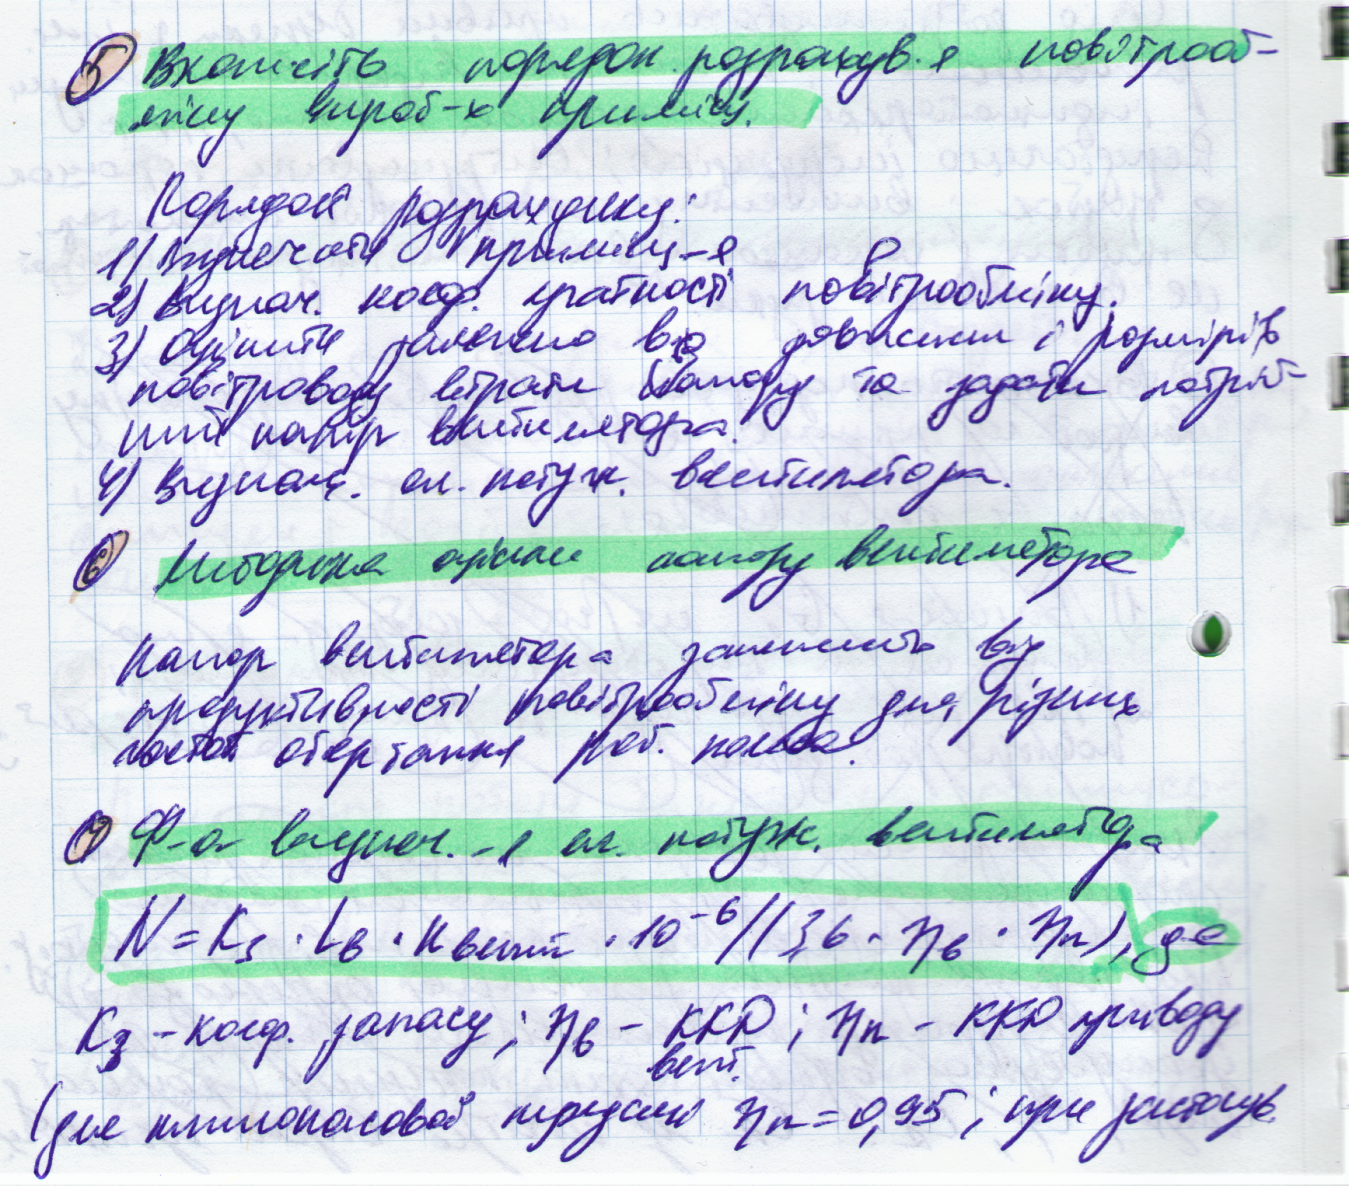 5 Вкажіть порядок розрахув-я повітрооб-
міну вироб-х приміщ.
Порядок розрахунку:
1) Визначати приміщ-я
2) Визнач. коеф. кратності повітрообміну.
3) Оцінити залежно від довжини і розмірів
повітроводу втрати напору та задати потріб-
ний напір вентилятора.
4) Визнач. ел. потуж. вентилятора.
6 Методика оцінки напору вентилятора
Напор вентилятора залежить від
продуктивності повітрообміну для різних
частот обертання роб. колеса.
7 Ф-а визнач.-я ел. потуж. вентилятора
N = Kз · Lв · Hвент · 10⁻⁶/(3,6 · ηв · ηп), де
Kз – коеф. запасу; ηв – ККД ; ηп – ККД приводу
вент.
(для клинопасової передачі ηп = 0,95; при застосув.